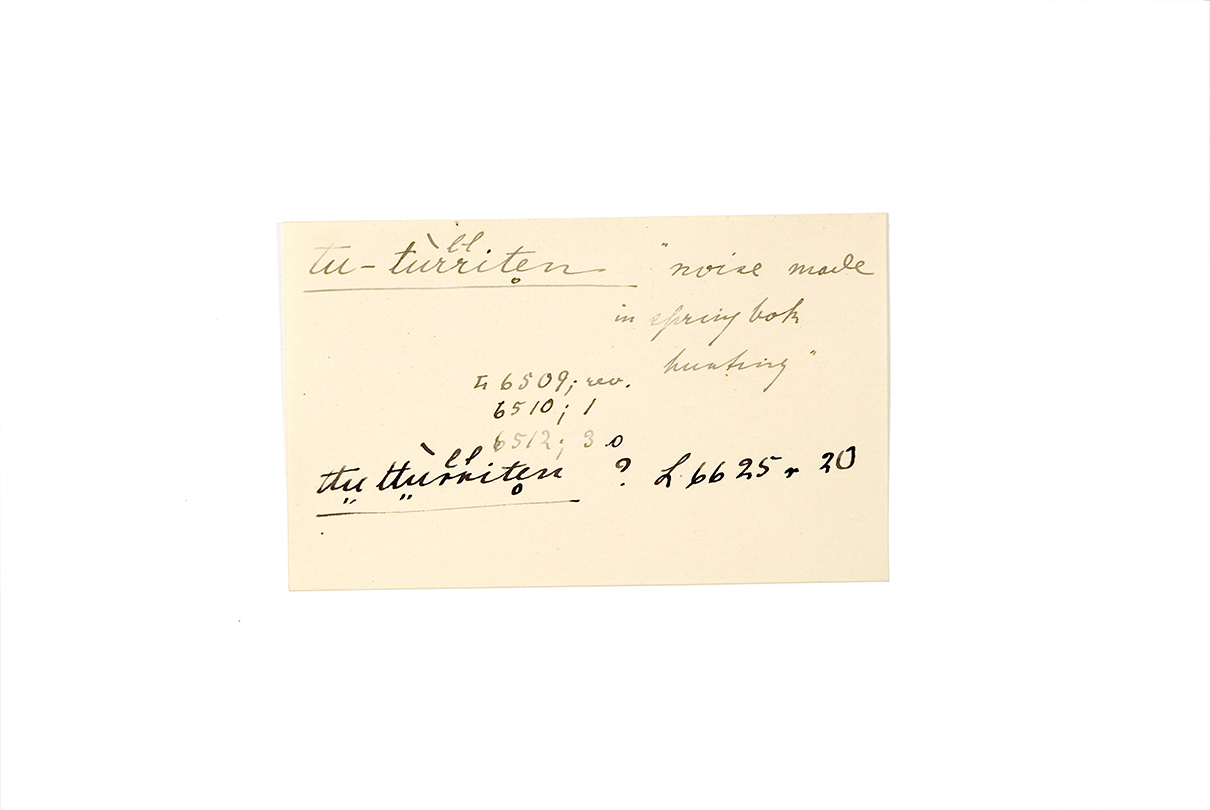 tu-tùrritẹn "noise made
ll
in springbok
hunting"
L 6509; rev.
6510; 1
6512; 30
ttṳ ttṳ̀rritẹn ? L. 6625 r 20
ll